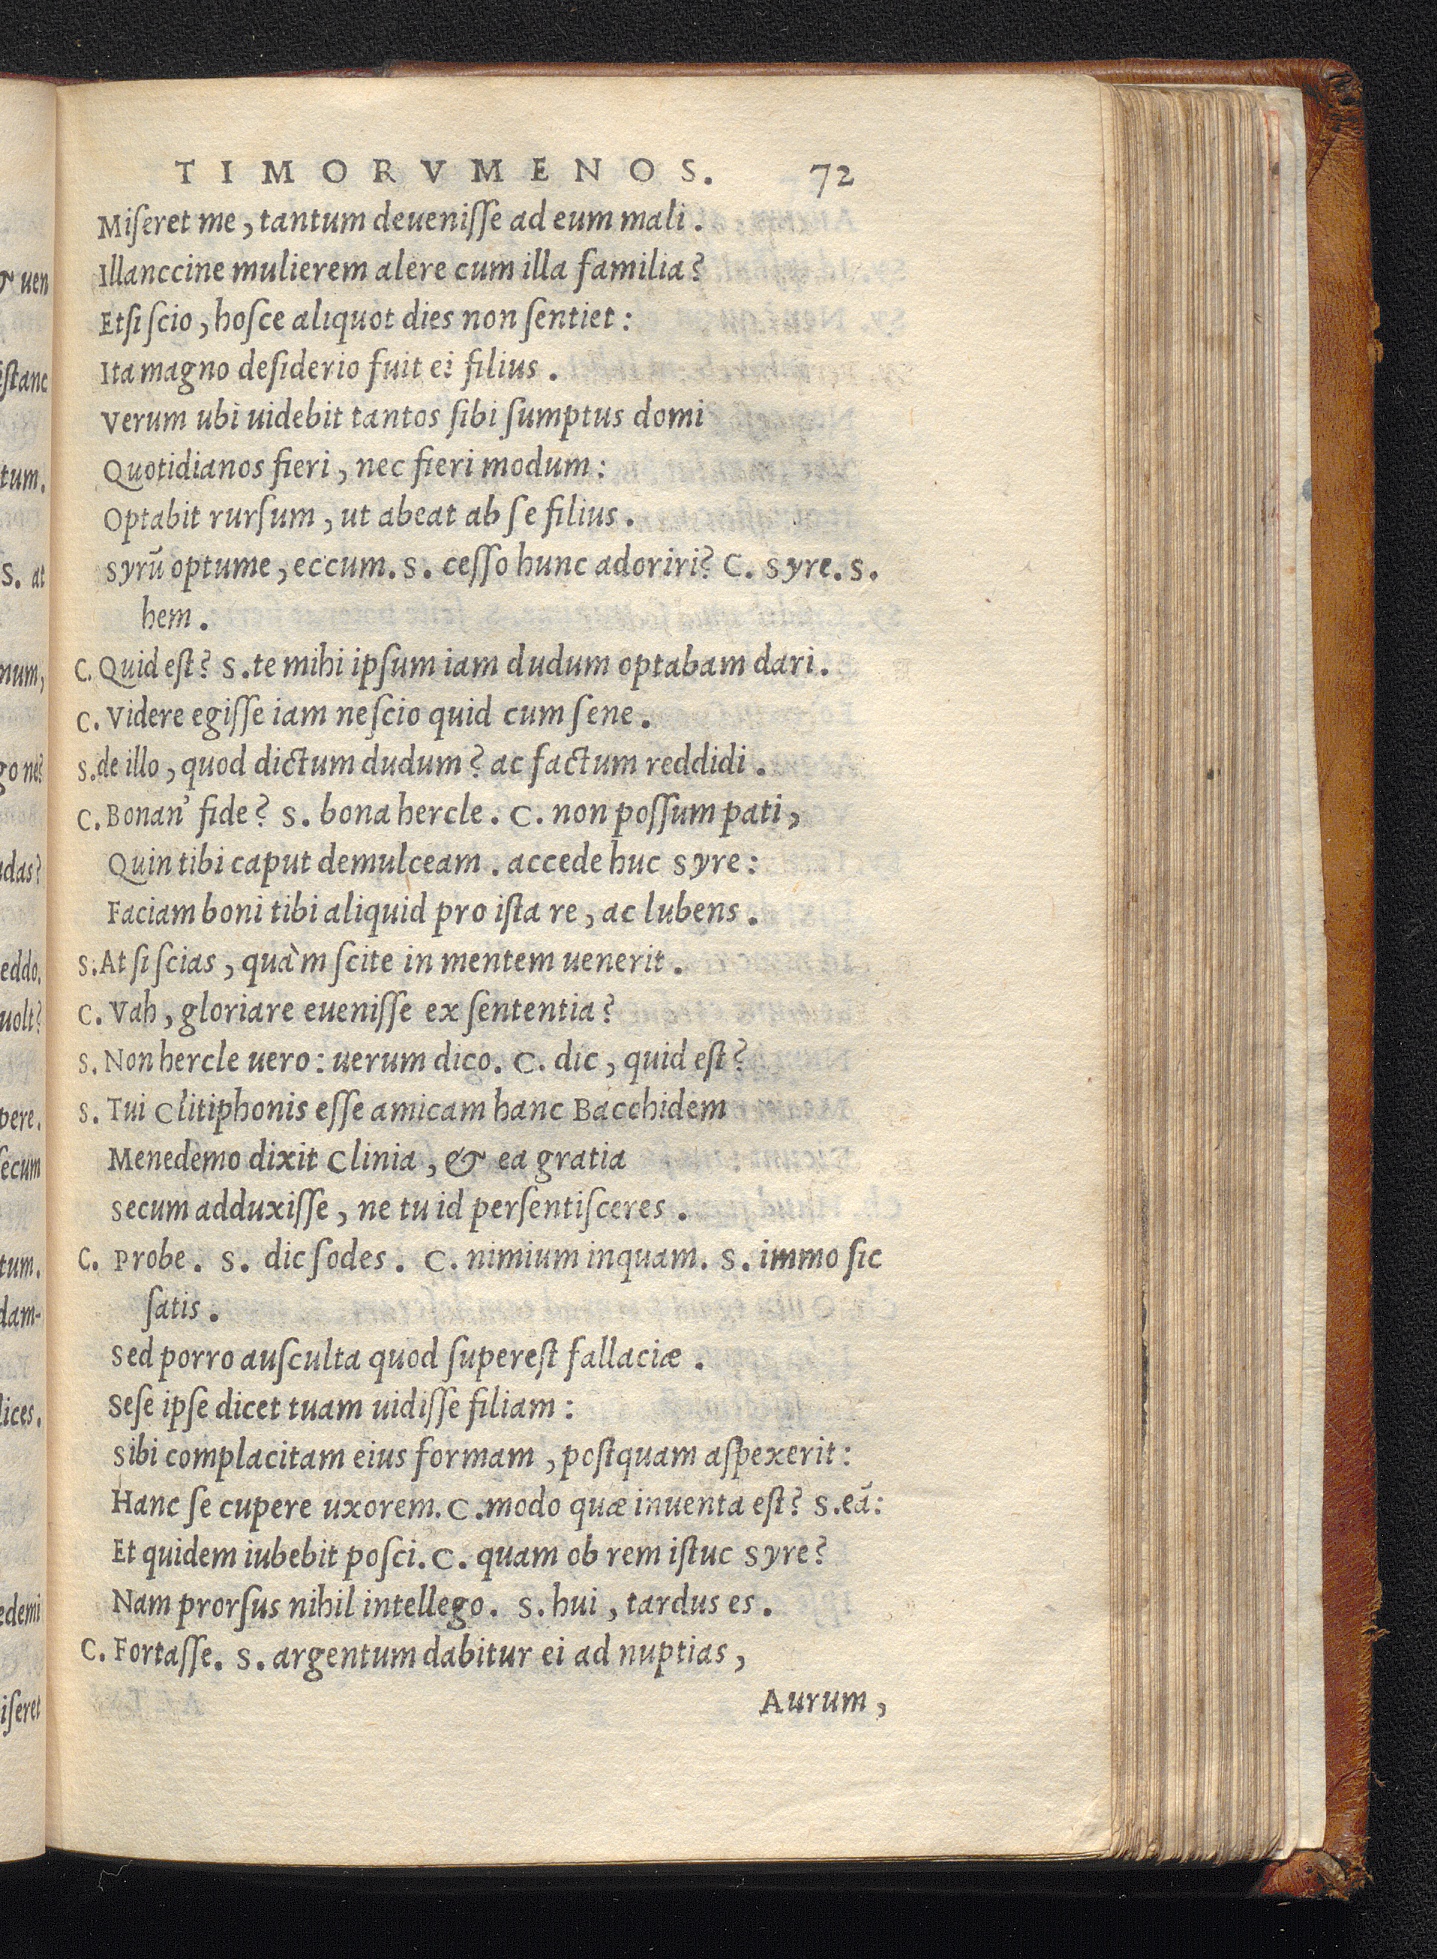 TIMORVMENOS. 72
Miſeret me, tantum deueniſſe ad eum mali.
Illanccine mulierem alere cum illa familia?
Etſi ſcio, hoſce aliquot dies non ſentiet:
Ita magno deſiderio fuit ei filius.
Verum ubi uidebit tantos ſibi ſumptus domi
Quotidianos fieri, nec fieri modum:
Optabit rurſum, ut abeat ab ſe filius.
Syrū optume, eccum. S. ceſſo hunc adoriri? C. Syre. S.
hem.
C. Quid eſt? S. te mihi ipſum iam dudum optabam dari.
C. Videre egiſſe iam neſcio quid cum ſene.
S. de illo, quod dictum dudum? ac factum reddidi.
C. Bonan' fide? S. bona hercle. C. non poſſum pati,
Quin tibi caput demulceam. accede huc Syre:
Faciam boni tibi aliquid pro iſta re, ac lubens.
S. At ſi ſcias, quàm ſcite in mentem uenerit.
C. Vah, gloriare eueniſſe ex ſententia?
S. Non hercle uero: uerum dico. C. dic, quid eſt?
S. Tui Clitiphonis eſſe amicam hanc Bacchidem
Menedemo dixit Clinia, & ea gratia
Secum adduxiſſe, ne tu id perſentiſceres.
C. Probe. S. dic ſodes. C. nimium inquam. S. immo ſic
ſatis.
Sed porro auſculta quod ſupereſt fallaciæ.
Seſe ipſe dicet tuam uidiſſe filiam:
Sibi complacitam eius formam, poſtquam aſpexerit:
Hanc ſe cupere uxorem. C. modo quæ inuenta eſt? S. eā:
Et quidem iubebit poſci. C. quam ob rem iſtuc Syre?
Nam prorſus nihil intellego. S. hui, tardus es.
C. Fortaſſe. S. argentum dabitur ei ad nuptias,
Aurum,